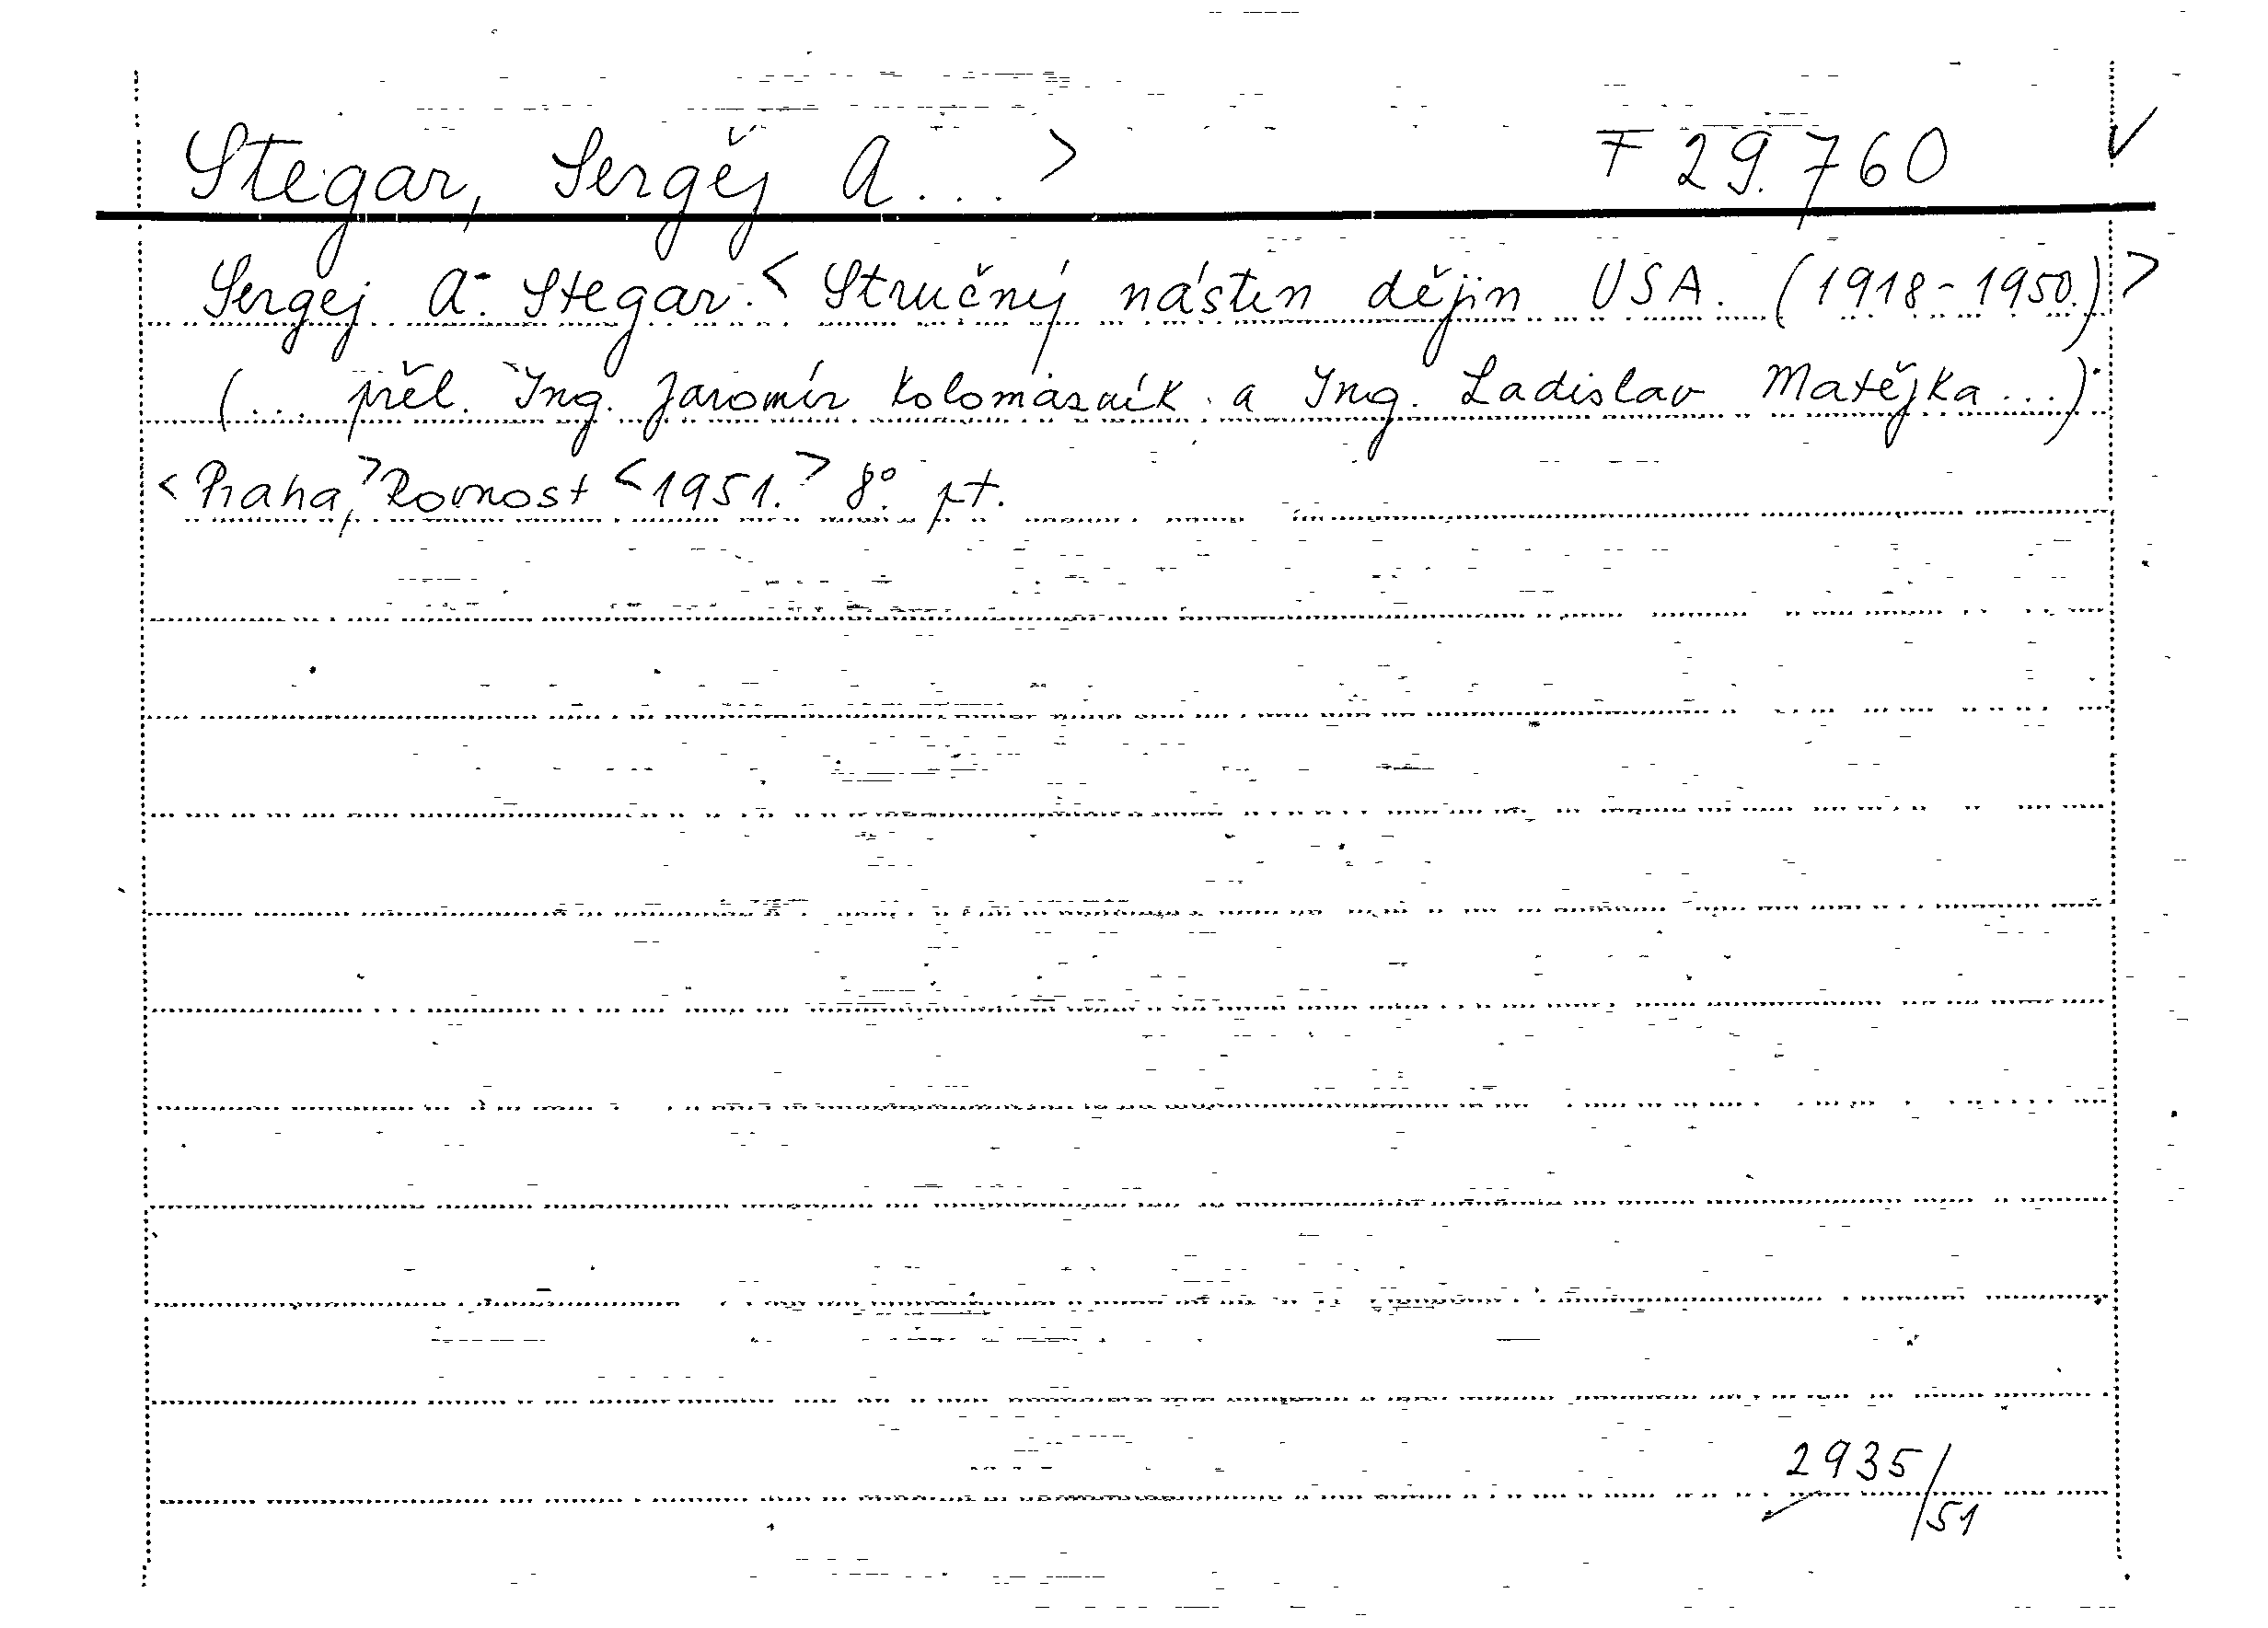 Stegar, Sergěj A...> F 29.760 √
Sergej A. Stegar. < Stručný nástin dějin USA. (1918-1950.) >
(... přel. Ing. Jaromír Kolomazník a Ing. Ladislav Matějka...).
< Praha, > Rovnost < 1951. > 8°. pt.
2935/51